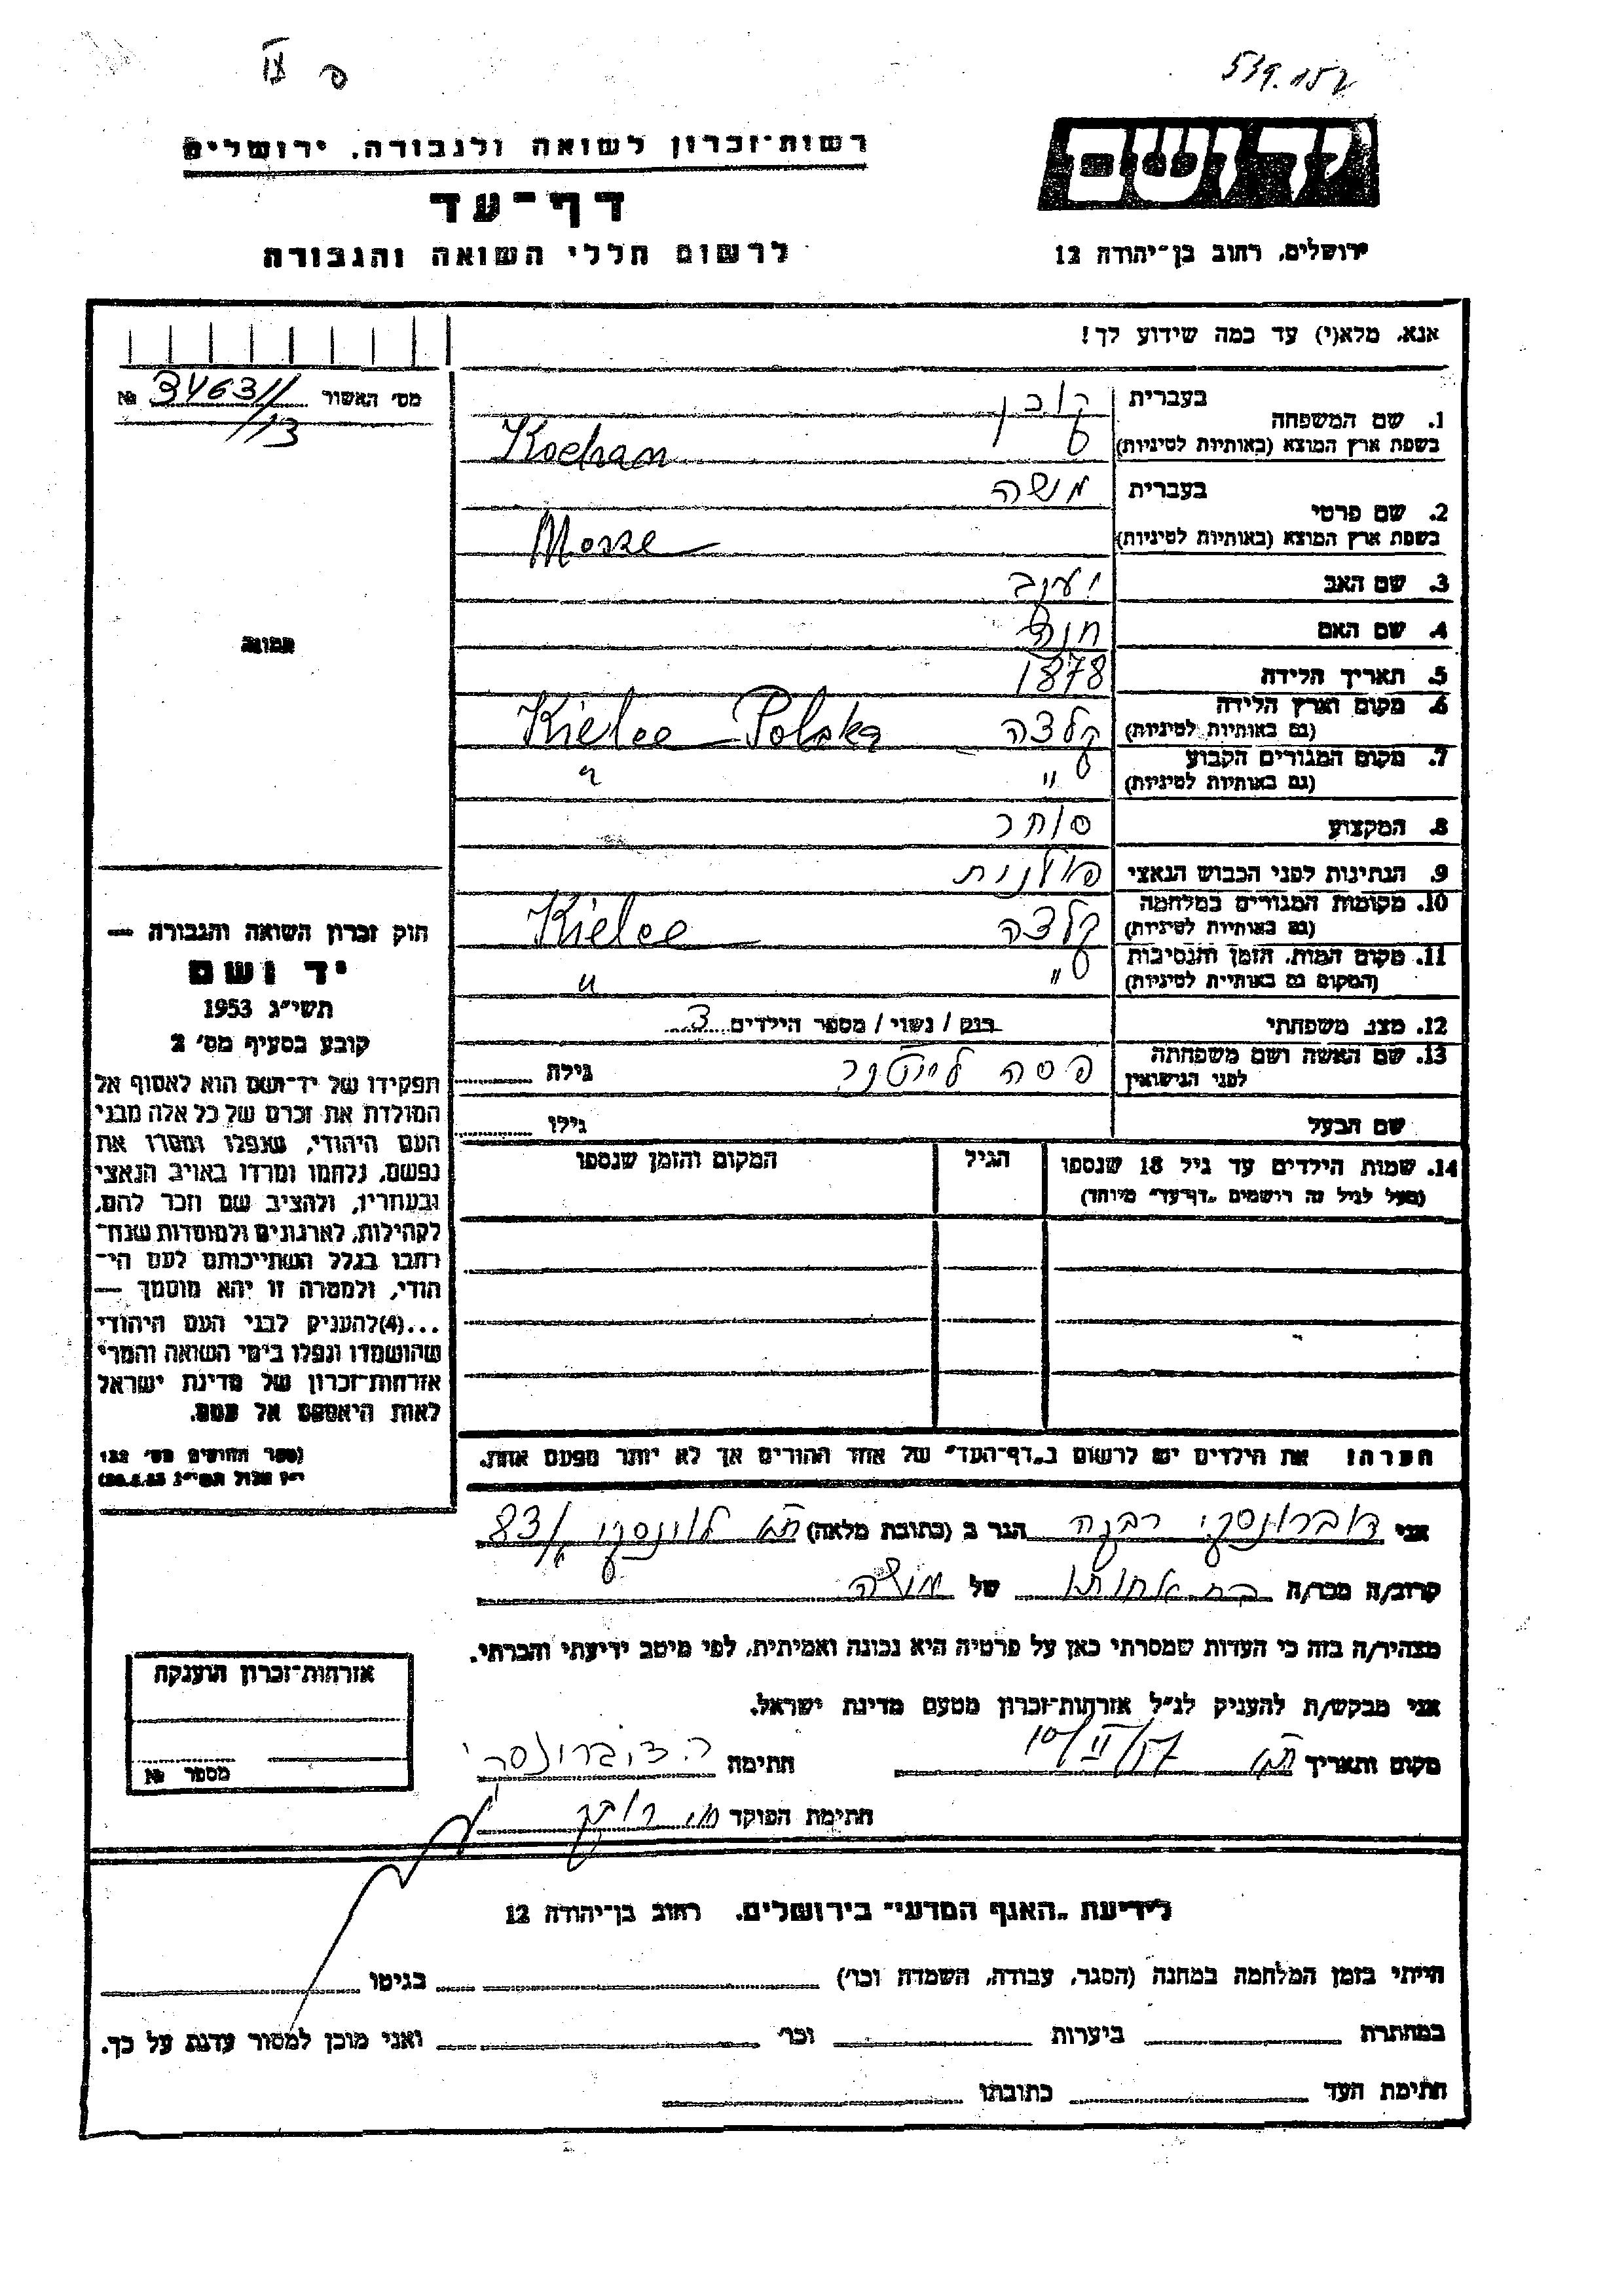 539.152
IV פ
יד ושם
ירושלים, רחוב בן־יהודה 12
רשות־זכרון לשואה ולגבורה, ירושלים
דף־עד
לרשום חללי השואה והגבורה
אנא, מלא(י) עד כמה שידוע לך!
מס' האשור 34631/ №
/13
תמונה
חוק זכרון השואה והגבורה —
יד ושם
תשי"ג 1953
קובע בסעיף מס' 2
תפקידו של יד־ושם הוא לאסוף אל
המולדת את זכרם של כל אלה מבני
העם היהודי, שנפלו ומסרו את
נפשם, נלחמו ומרדו באויב הנאצי
ובעוזריו, ולהציב שם וזכר להם,
לקהילות, לארגונים ולמוסדות שנח־
רבו בגלל השתייכותם לעם הי־
הודי, ולמטרה זו יהא מוסמך —
...(4)להעניק לבני העם היהודי
שהושמדו ונפלו בימי השואה והמרי
אזרחות־זכרון של מדינת ישראל
לאות היאספם אל עמם.
(ספר החוקים מס' 132
1. שם המשפחה
בעברית קוכן
בשפת ארץ המוצא (באותיות לטיניות) Kochan
2. שם פרטי
בעברית משה
בשפת ארץ המוצא (באותיות לטיניות) Mosze
3. שם האב יעקב
4. שם האם חנה
5. תאריך הלידה 1878
6. מקום וארץ הלידה
(גם באותיות לטיניות) קלצה Kielce – Polska
7. מקום המגורים הקבוע
(גם באותיות לטיניות) " "
8. המקצוע סוחר
9. הנתינות לפני הכבוש הנאצי פולנית
10. מקומות המגורים במלחמה
(גם באותיות לטיניות) קלצה Kielce
11. מקום המות, הזמן והנסיבות
(המקום גם באותיות לטיניות) " "
12. מצב משפחתי רווק / נשוי / מספר הילדים 3
13. שם האשה ושם משפחתה
לפני הנישואין פסה גילה
שם הבעל גילו
14. שמות הילדים עד גיל 18 שנספו הגיל המקום והזמן שנספו
(מעל לגיל זה רושמים „דף־עד" מיוחד)
הערה! את הילדים יש לרשום ב„דף־העד" של אחד ההורים אך לא יותר מפעם אחת.
אני דוברונסקי רבקה הגר ב (כתובת מלאה) ת"א לוינסקי 83/
קרוב/ה מכר/ה בת אחותו של משה
מצהיר/ה בזה כי העדות שמסרתי כאן על פרטיה היא נכונה ואמיתית, לפי מיטב ידיעתי והכרתי.
אני מבקש/ת להעניק לנ"ל אזרחות־זכרון מטעם מדינת ישראל.
מקום ותאריך ת"א 10/II/57 חתימה ר. דוברונסקי
חתימת הפוקד
אזרחות־זכרון הוענקה
מספר №
לידיעת „האגף המדעי" בירושלים, רחוב בן־יהודה 12
הייתי בזמן המלחמה במחנה (הסגר, עבודה, השמדה וכו') בגיטו
במחתרת ביערות וכו' ואני מוכן למסור עדות על כך.
חתימת העד כתובתו